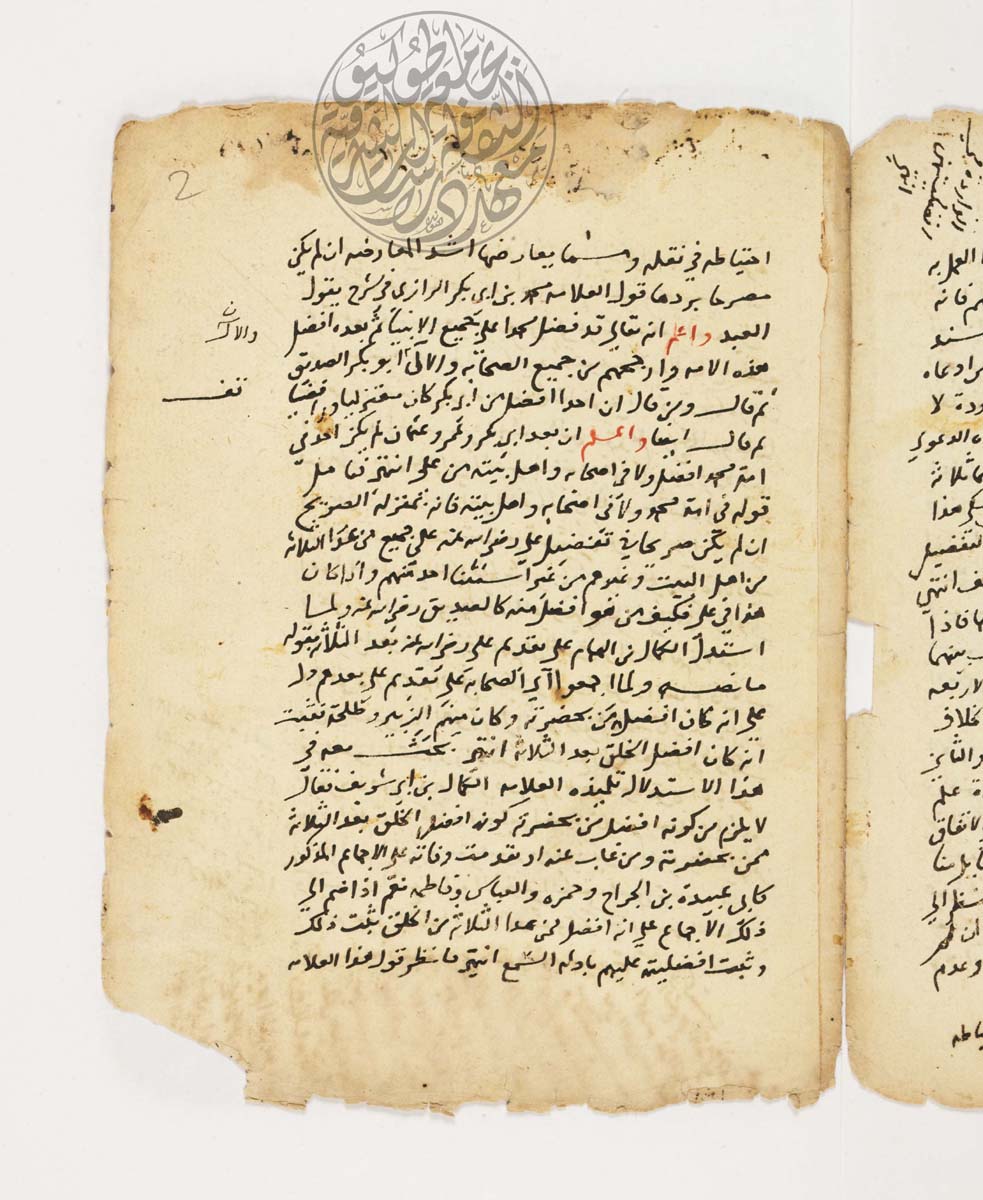 احتياطه في نقله ومما يعارضها اشد المعارضه ان لم يكن
مصرحا بردها قول العلامه محمد بن ابي بكر الرازي في شرح يقول
العبد واعلم انه تعالى قد فضل محمدا على جميع الانبيا ثم بعده افضل
هذه الامه وارجحهم من جميع الصحابه والآل ابو بكر الصديق
ثم قال ومن قال ان احدا افضل من ابي بكر كان معتزليا ورافضيا
ثم قال ايضا واعلم ان بعد ابي بكر وعمر وعثمان لم يكن احد في
امة محمد افضل ولا في اصحابه واهل بيته من علي انتهى فتامل
قوله في امة محمد ولا في اصحابه واهل بيته فانه بمنزلة الصريح
ان لم يكن صريحا في تفضيل علي رضي الله عنه على جميع من عدا الثلاثه
من اهل البيت وغيرهم من غير استثنا احد منهم واذا كان
هذا في علي فكيف من هو افضل منه كالصديق رضي الله عنه ولما
استدل الكمال بن الهمام على تقديم علي رضي الله عنه بعد الثلاثه بقوله
ما نصه ولما اجمعوا اي الصحابه على تقديم علي بعدهم دل
على انه كان افضل من بحضرته وكان منهم الزبير وطلحة فثبت
انه كان افضل الخلق بعد الثلاثه انتهى بحث معه في
هذا الاستدلال تلميذه العلامه الكمال بن ابي شريف فقال
لا يلزم من كونه افضل من بحضرته كونه افضل الخلق بعد الثلاثه
ممن بحضرته ومن غاب عنه او تقدمت وفاته على الاجماع المذكور
كابي عبيدة بن الجراح وحمزه والعباس وفاطمه نعم اذا ضم الى
ذلك الاجماع على انه افضل ممن عدا الثلاثه من الخلق ثبت ذلك
وثبت افضليته عليهم بادلة السمع انتهى فانظر قول هذا العلامه
2
انتهى
العمل به
م فانه
الدعوى
ثلاثة
هذا
التفضيل
انتهى
فاذا
بينهما
الاربعه
والثاني
الاتفاق
وعدم